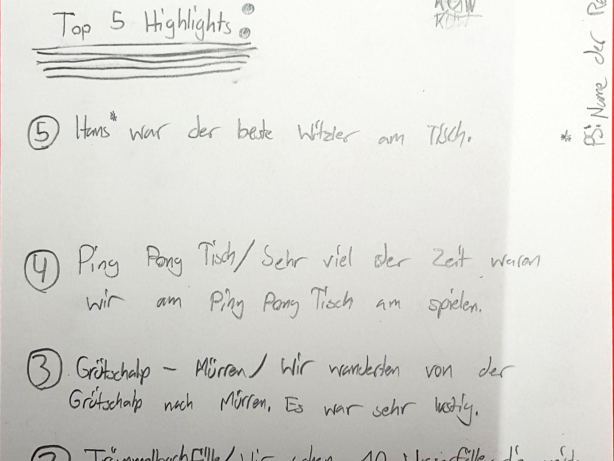 Top 5 Highlights:
⑤ Hans* war der beste Witzler am Tisch.
④ Ping Pong Tisch/Sehr viel der Zeit waren
wir am Ping Pong Tisch am spielen.
③ Grütschalp – Mürren/Wir wanderten von der
Grütschalp nach Mürren. Es war sehr lustig.
② Trümmelbachfälle/Wir 10
* PS: Name der